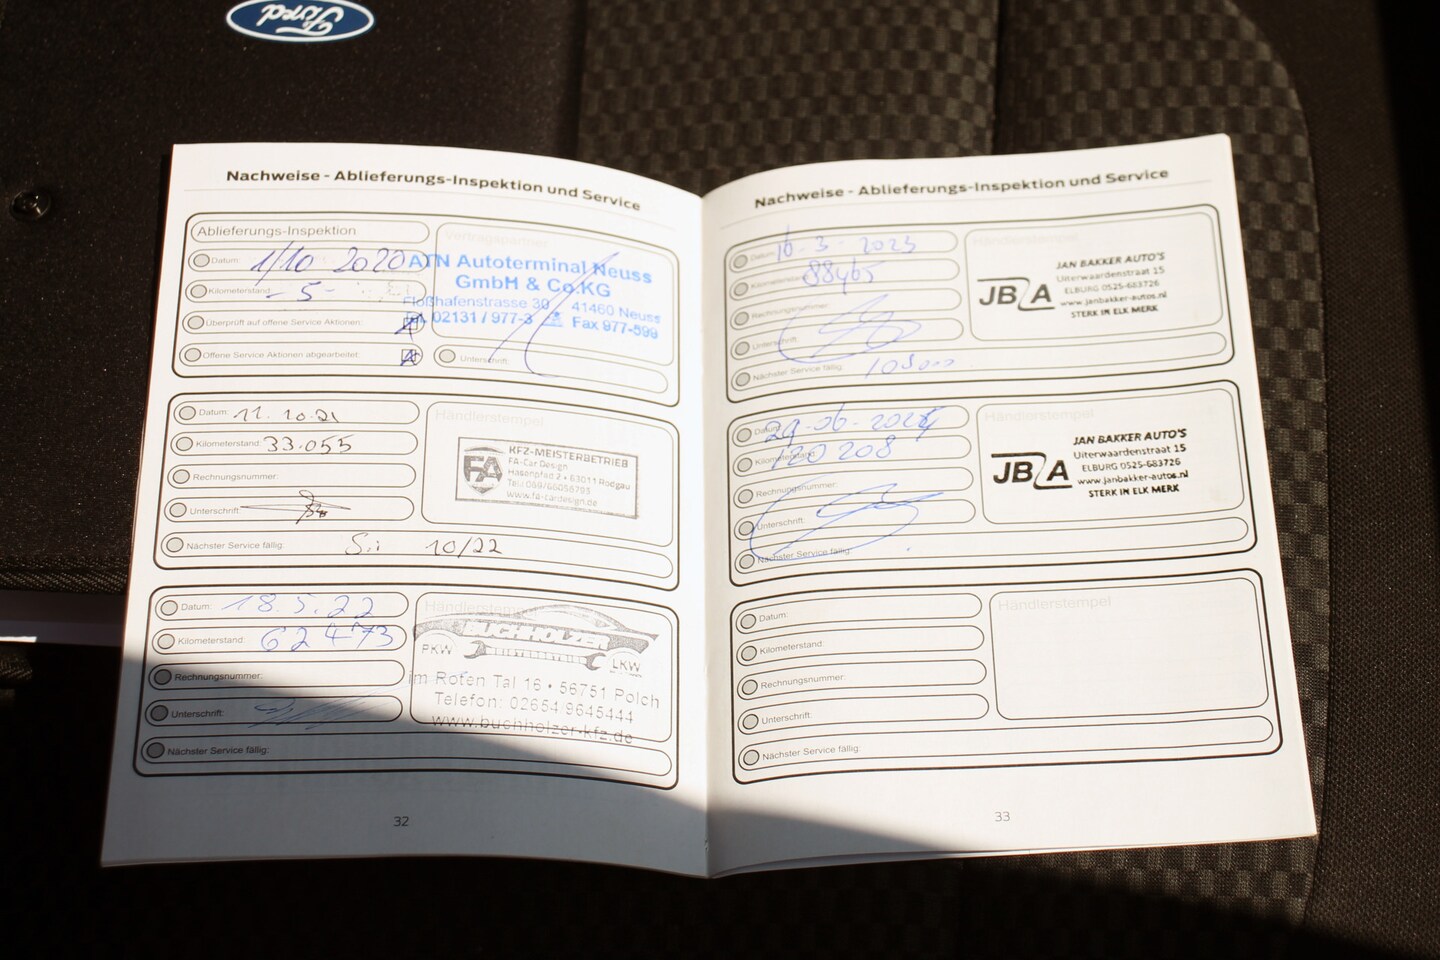 Ford
Nachweise - Ablieferungs-Inspektion und Service
Ablieferungs-Inspektion
Datum: 1/10 2020
Kilometerstand: - 5 -
Überprüft auf offene Service Aktionen:
Offene Service Aktionen abgearbeitet:
Vertragspartner
ATN Autoterminal Neuss
GmbH & Co.KG
Floßhafenstrasse 30 41460 Neuss
Tel. 02131 / 977-3 Fax 977-599
Unterschrift:
Datum: 11.10.21
Kilometerstand: 33.055
Rechnungsnummer:
Unterschrift:
Nächster Service fällig: 10/22
Händlerstempel
FA
KFZ-MEISTERBETRIEB
FA-Car Design
Hasenpfad 2 • 63011 Rodgau
www.fa-cardesign.de
Datum: 18.5.22
Kilometerstand: 62473
Rechnungsnummer:
Unterschrift:
Nächster Service fällig:
Händlerstempel
BUCHHOLZER
PKW LKW
im Roten Tal 16 • 56751 Polch
Telefon: 02654/9645444
www.buchholzer-kfz.de
32
Nachweise - Ablieferungs-Inspektion und Service
Datum: 16-3-2023
Kilometerstand: 88465
Rechnungsnummer:
Unterschrift:
Nächster Service fällig:
Händlerstempel
JBA
JAN BAKKER AUTO'S
Uiterwaardenstraat 15
ELBURG 0525-683726
www.janbakker-autos.nl
STERK IN ELK MERK
Datum: 29-06-2024
Kilometerstand: 120208
Rechnungsnummer:
Unterschrift:
Nächster Service fällig:
Händlerstempel
JBA
JAN BAKKER AUTO'S
Uiterwaardenstraat 15
ELBURG 0525-683726
www.janbakker-autos.nl
STERK IN ELK MERK
Datum:
Kilometerstand:
Rechnungsnummer:
Unterschrift:
Nächster Service fällig:
Händlerstempel
33